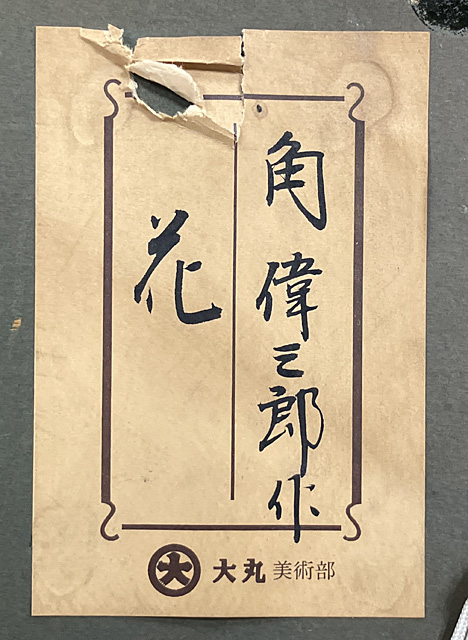 角偉三郎作
花
大 大丸 美術部